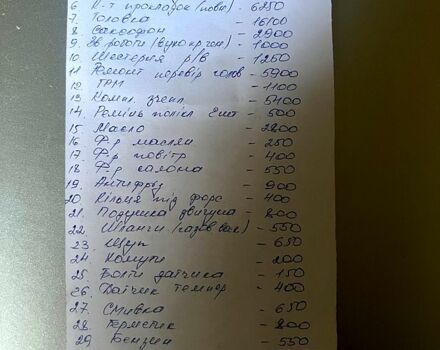 6. К-т прокладок (повн) - 6250
7. Головка - 16100
8. Саксофон - 2900
9. Зв роботи (вухо кр ген) - 1000
10. Шестерня р/в - 1250
11. Ремонт перевір голов - 5900
12. ГРМ - 1100
13. Компл. зчепл - 5400
14. Ремінь полікл - 500
15. Масло - 2800
16. Ф.р маслян - 250
17. Ф.р повітр - 400
18. Ф.р салона - 550
19. Антифриз - 900
20. Кільця під форс - 400
21. Подушка двигуна - 800
22. Шланги (газов) - 550
23. Щуп - 650
24. Хомути - 200
25. Болти датчика - 150
26. Датчик темпер - 400
27. Смивка - 650
28. Герметик - 800
29. Бензин - 550